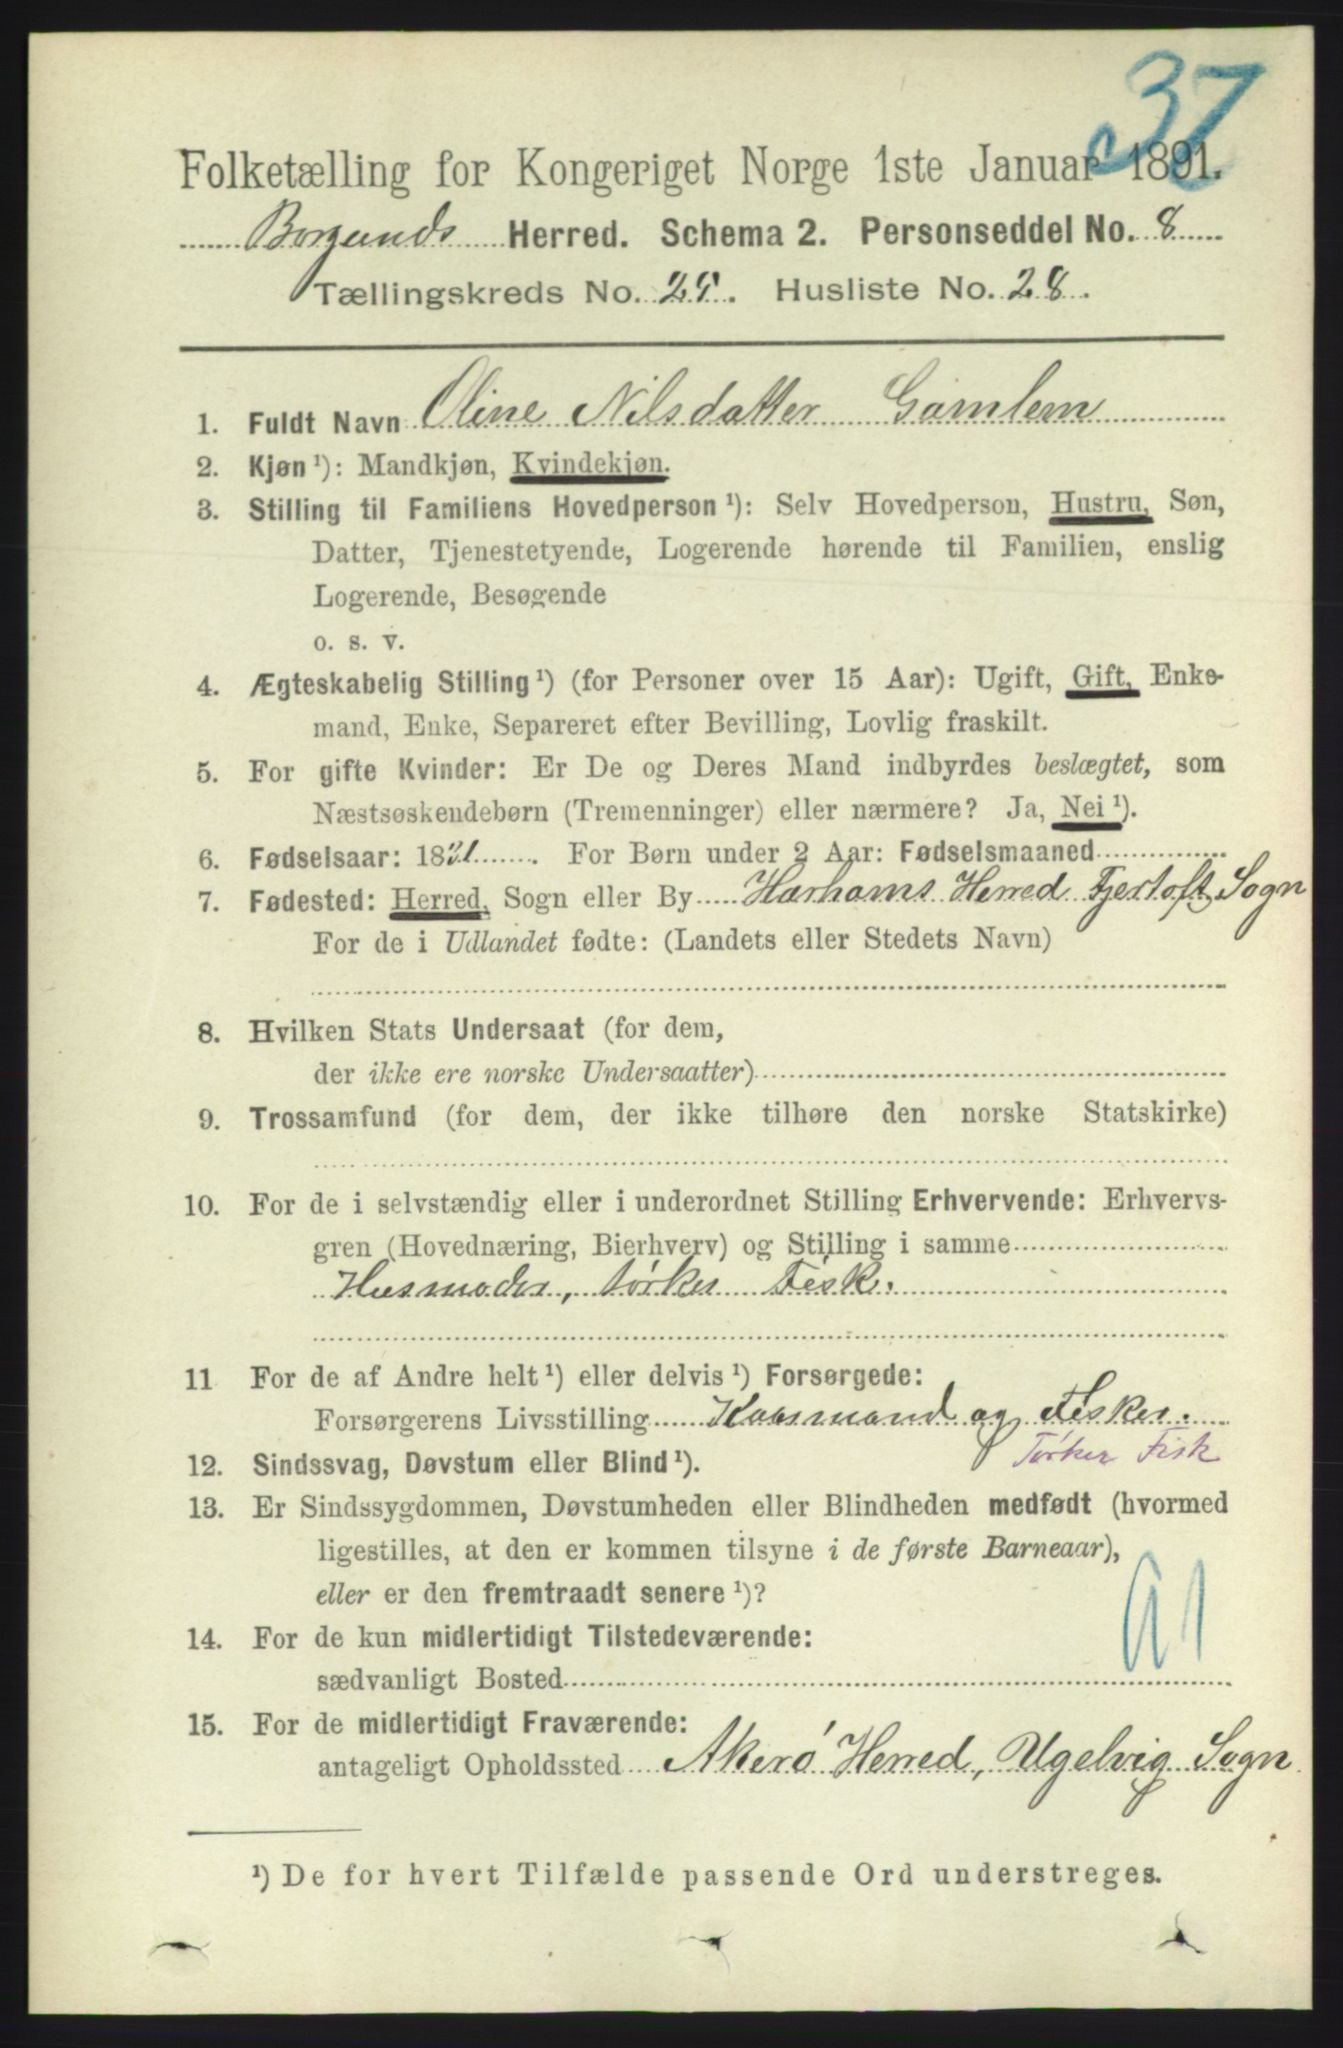 37
Folketælling for Kongeriget Norge 1ste Januar 1891.
Borgunds Herred. Schema 2. Personseddel No. 8
Tællingskreds No. 25. Husliste No. 28.
1. Fuldt Navn Oline Nilsdatter Gamlem
2. Kjøn ¹): Mandkjøn, Kvindekjøn.
3. Stilling til Familiens Hovedperson ¹): Selv Hovedperson, Hustru, Søn,
Datter, Tjenestetyende, Logerende hørende til Familien, enslig
Logerende, Besøgende
o. s. v.
4. Ægteskabelig Stilling ¹) (for Personer over 15 Aar): Ugift, Gift, Enke-
mand, Enke, Separeret efter Bevilling, Lovlig fraskilt.
5. For gifte Kvinder: Er De og Deres Mand indbyrdes beslægtet, som
Næstsøskendebørn (Tremenninger) eller nærmere? Ja, Nei ¹).
6. Fødselsaar: 1831. For Børn under 2 Aar: Fødselsmaaned
7. Fødested: Herred, Sogn eller By Harhams Herred Fjertoft Sogn
For de i Udlandet fødte: (Landets eller Stedets Navn)
8. Hvilken Stats Undersaat (for dem,
der ikke ere norske Undersaatter)
9. Trossamfund (for dem, der ikke tilhøre den norske Statskirke)
10. For de i selvstændig eller i underordnet Stilling Erhvervende: Erhvervs-
gren (Hovednæring, Bierhverv) og Stilling i samme
Husmoder, tørker Fisk.
11 For de af Andre helt ¹) eller delvis ¹) Forsørgede:
Forsørgerens Livsstilling Kaarmand og Fisker.
Tørker Fisk
12. Sindssvag, Døvstum eller Blind ¹).
13. Er Sindssygdommen, Døvstumheden eller Blindheden medfødt (hvormed
ligestilles, at den er kommen tilsyne i de første Barneaar),
eller er den fremtraadt senere ¹)?
91
14. For de kun midlertidigt Tilstedeværende:
sædvanligt Bosted
15. For de midlertidigt Fraværende:
antageligt Opholdssted Akerø Herred, Ugelvig Sogn
¹) De for hvert Tilfælde passende Ord understreges.